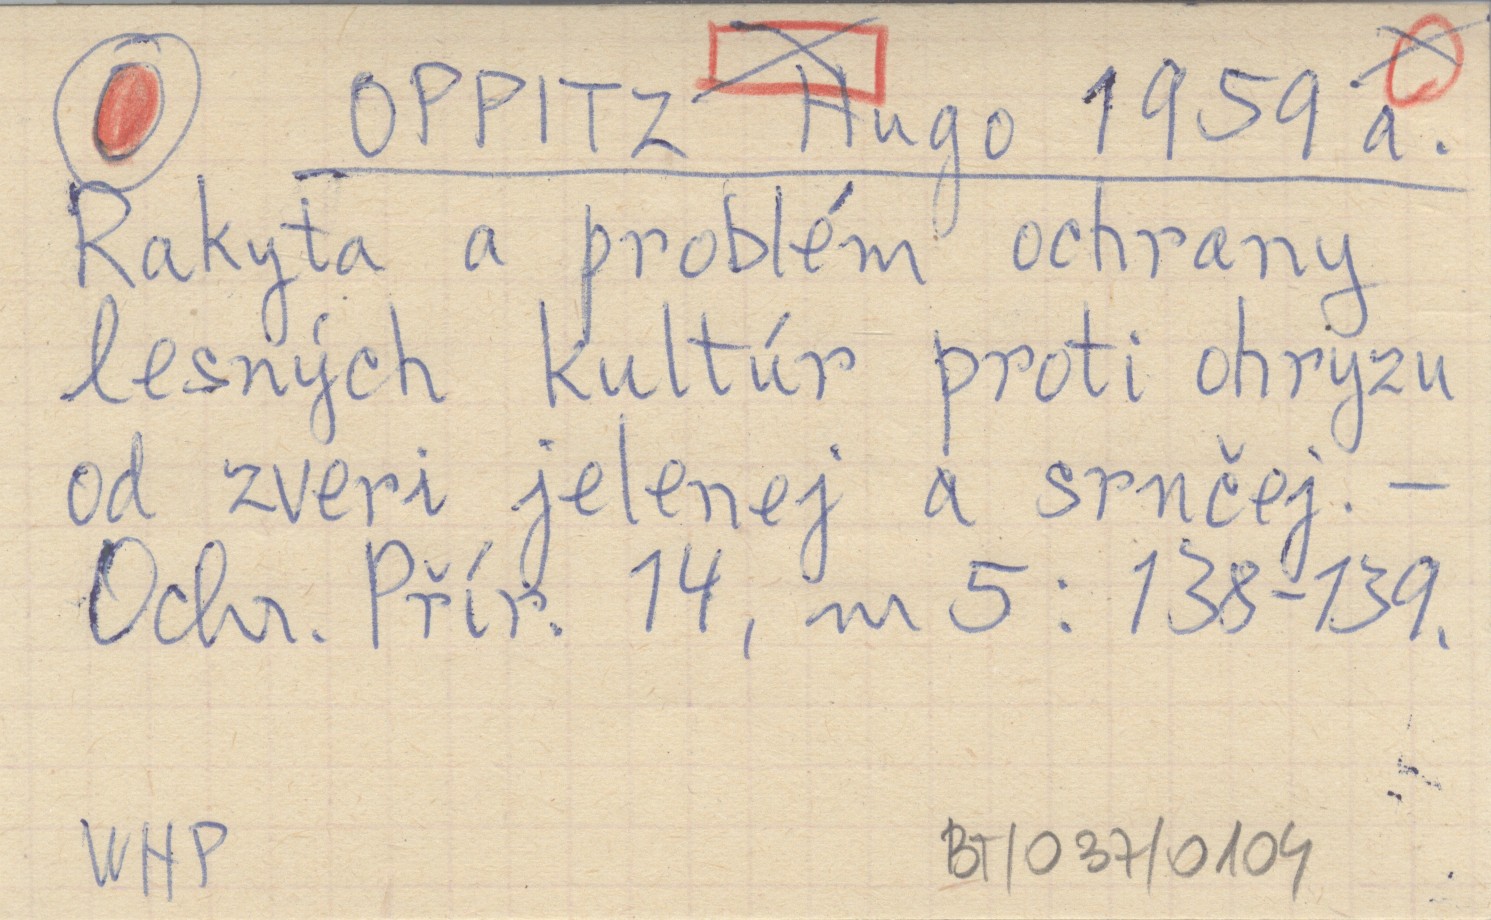 OPPITZ Hugo 1959 a.
Rakyta a problém ochrany
lesných kultúr proti ohryzu
od zveri jelenej a srnčej. –
Ochr. Přír. 14, no 5 : 138-139.
WHP
BT/037/0104